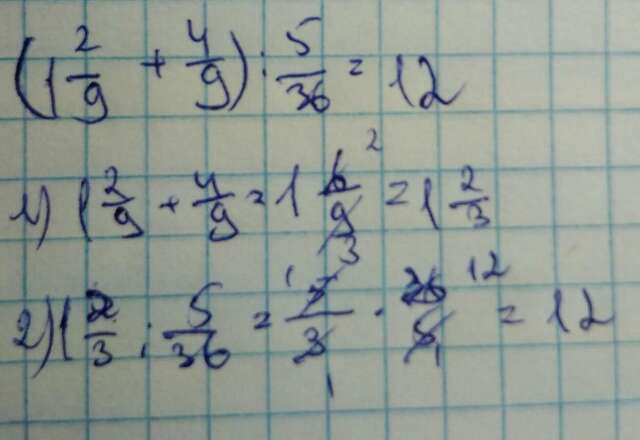 (1 2/9 + 4/9) : 5/36 = 12
1) 1 2/9 + 4/9 = 1 6/9 2 3 = 1 2/3
2) 1 2/3 : 5/36 = 1 5/3 1 · 36/5 12 1 = 12